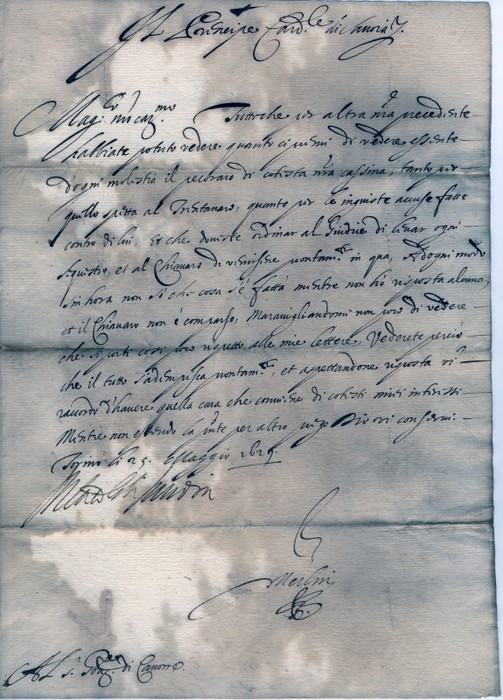 Il Principe Card.le di Savoia
Mag.co n.ro car.mo Tuttoche per altra n.ra precedente
habbiate potuto vedere quanto ci premi di vedere essente
d'ogni molestia il pecoraro di cotesta n.ra cassina, tanto per
quello spetta al Trentanaro, quanto per le ingiuste accuse fatte
contro di lui, Et che doveste ordinar al Giudice di levar ogni
sequestro, et al Chianaro di venirsene prontam.te in qua, Ad ogni modo
sin hora non si che cosa s'é fatta mentre non hó risposta alcuna,
et il Chianaro non é comparso, Maravigliandomi non poco di vedere
che si porti cosi poco rispetto alle mie lettere. Vedrete perció
che il tutto s'adempisca prontam.te, et aspettandone risposta vi
raccordo d'havere quella cura che conviene di cotesti miei interessi
Mentre non essendo la p.nte per altro prego Dio vi conservi
Torino li 25 Maggio 1625
Merlini
Al S.r di Cavorre